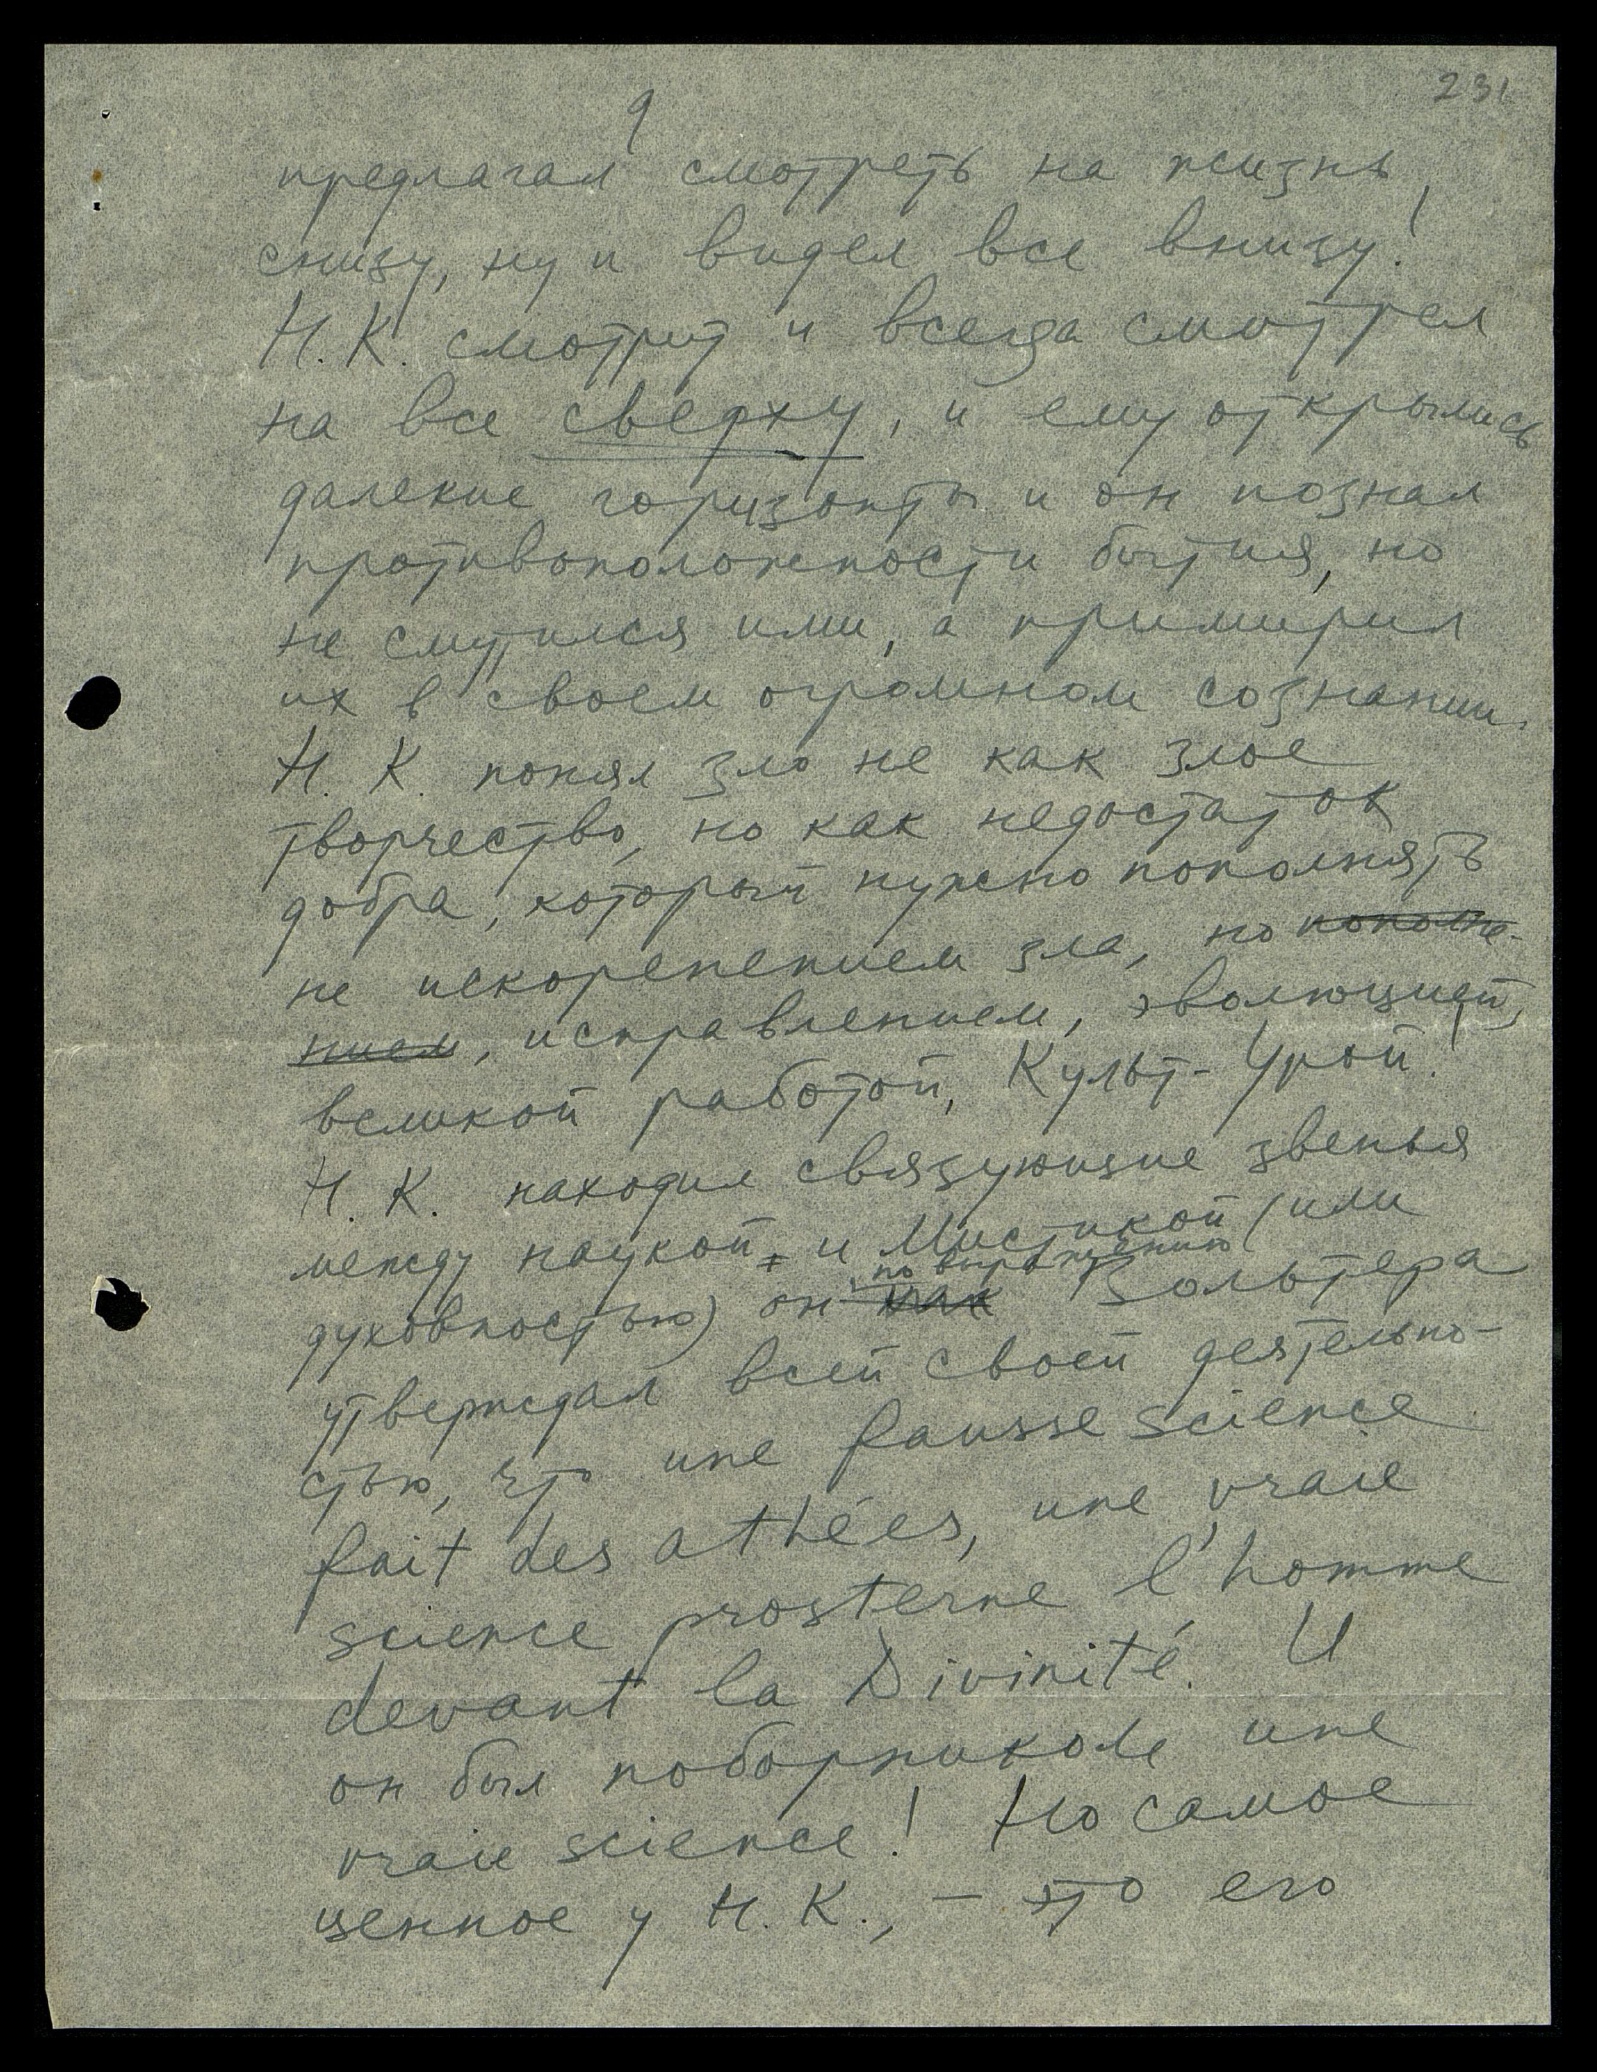 231
9
предлагал смотреть на жизнь
снизу, ну и видел все внизу!
Н. К. смотрит и всегда смотрел
на все сверху, и ему открылись
далекие горизонты и он познал
противоположности бытия, но
не смутился ими, а примирил
их в своем огромном сознании.
Н. К. понял зло не как злое
творчество, но как недостаток
добра, который нужно пополнять
не искоренением зла, но пополне-
нием, исправлением, эволюцией,
великой работой, Культ-Урой!
Н. К. находил связующие звенья
между наукой и Мистикой (или
по выражению
духовностью) он как Вольтера
утверждал всей своей деятельно-
стью, что une fausse science
fait des athées, une vraie
science prosterne l'homme
devant la Divinité. И
он был поборником une
vraie science! Но самое
ценное у Н. К., — это его